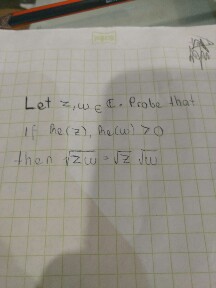 Let z, w ∈ ℂ. Probe that
if Re(z), Re(w) > 0
then √zw = √z √w